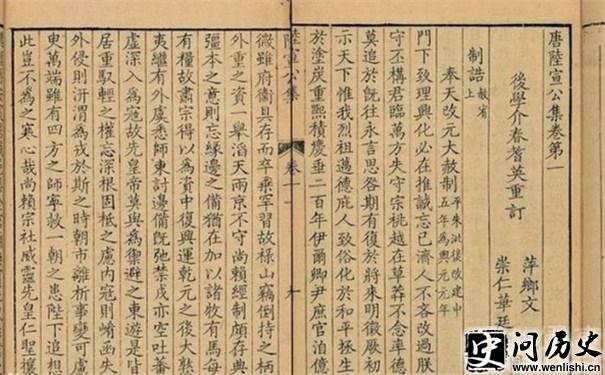 唐陸宣公集卷第一
後學介春耆英重訂
萍鄉文
崇仁華廷
制誥 赦宥上
奉天改元大赦制 平朱泚後改建中五年為興元元年
門下致理興化必在推誠忘己濟人不吝改過朕
守丕構君臨萬方失守宗祧越在草莽不念率德
莫追於既往永言思咎期有復於將來明徵厥初
示天下惟我烈祖邁德庇人致俗化於和平拯生
於塗炭重熙積慶垂二百年伊爾卿尹庶官洎億
陸宣公集 卷十一 十
微雖府衞具存而卒乗罕習故祿山竊倒持之柄
外重之資一舉滔天兩京不守尚賴經制頗存典
彊本之意則忘緣邊之備猶在加以諸牧有馬每
有糧故肅宗得以為資中復興運乾元之後大憝
夷繼有外虞悉師東討邊備既弛禁戎亦空吐蕃
虛深入為寇故先皇帝莫與為禦避之東遊是皆
居重馭輕之權忘深根固柢之慮內寇則崤函失
外侵則汧渭為戎於斯之時朝市離析事變可虞
臾萬端雖有四方之師寧救一朝之患陛下追想
此豈不為之寒心哉尚賴宗社威靈先皇仁聖攘
问历史
www.wenlishi.cn